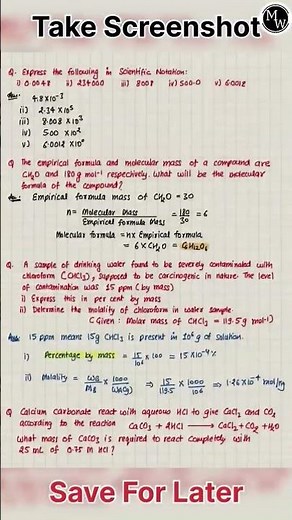 Take Screenshot
MW
Q. Express the following in Scientific Notation:
i) 0.0048 ii) 234000 iii) 8008 iv) 500.0 v) 6.0012
Ans: 4.8 × 10⁻³
ii) 2.34 × 10⁵
iii) 8.008 × 10³
iv) 5.00 × 10²
v) 6.0012 × 10⁰
Q The empirical formula and molecular mass of a compound are
CH₂O and 180 g mol⁻¹ respectively. What will be the molecular
formula of the compound?
Ans: Empirical formula mass of CH₂O = 30
n = Molecular Mass / Empirical formula Mass = 180/30 = 6
Molecular formula = n × Empirical formula
= 6 × CH₂O = C₆H₁₂O₆
Q. A sample of drinking water found to be severely contaminated with
chloroform (CHCl₃), supposed to be carcinogenic in nature. The level
of contamination was 15 ppm (by mass)
i) Express this in per cent by mass
ii) Determine the molality of chloroform in water sample.
(Given: Molar mass of CHCl₃ = 119.5 g mol⁻¹)
Ans: 15 ppm means 15g CHCl₃ is present in 10⁶ g of solution.
i) Percentage by mass = 15/10⁶ × 100 = 15 × 10⁻⁴ %
ii) Molality = × 1000 ⇒ 15/119.5 × 1000/10⁶ ⇒ 1.26 × 10⁻⁴ mol/kg
Q Calcium Carbonate react with aqueous HCl to give CaCl₂ and CO₂
according to the reaction CaCO₃ + 2HCl → CaCl₂ + CO₂ + H₂O
What mass of CaCO₃ is required to react completely with
25 mL of 0.75 M HCl?
Save For Later